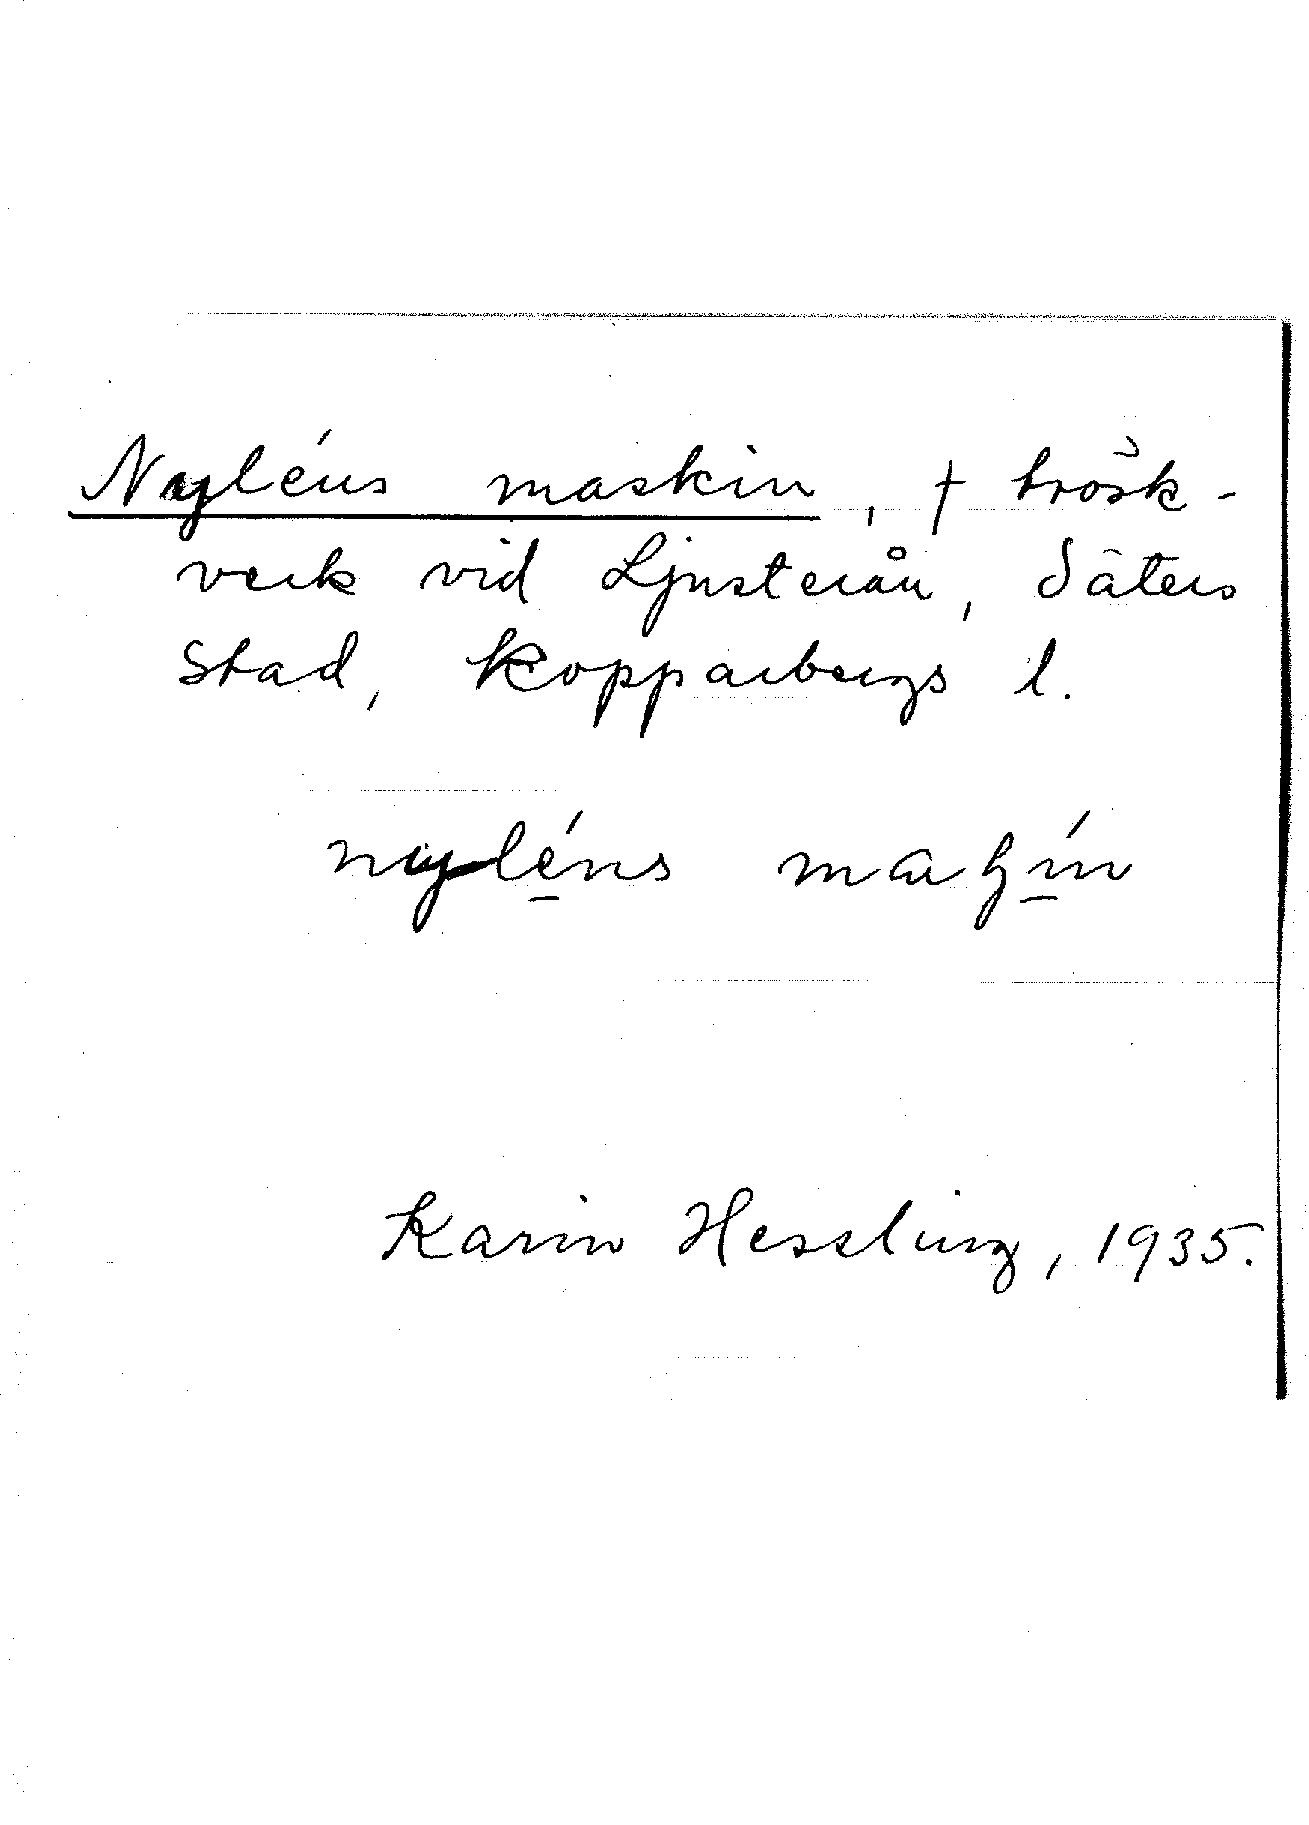 Nyléns maskin, † trösk-
verk vid Ljusterån, Säters
stad, Kopparbergs l.
nyléns maʃín
Karin Hessling, 1935.